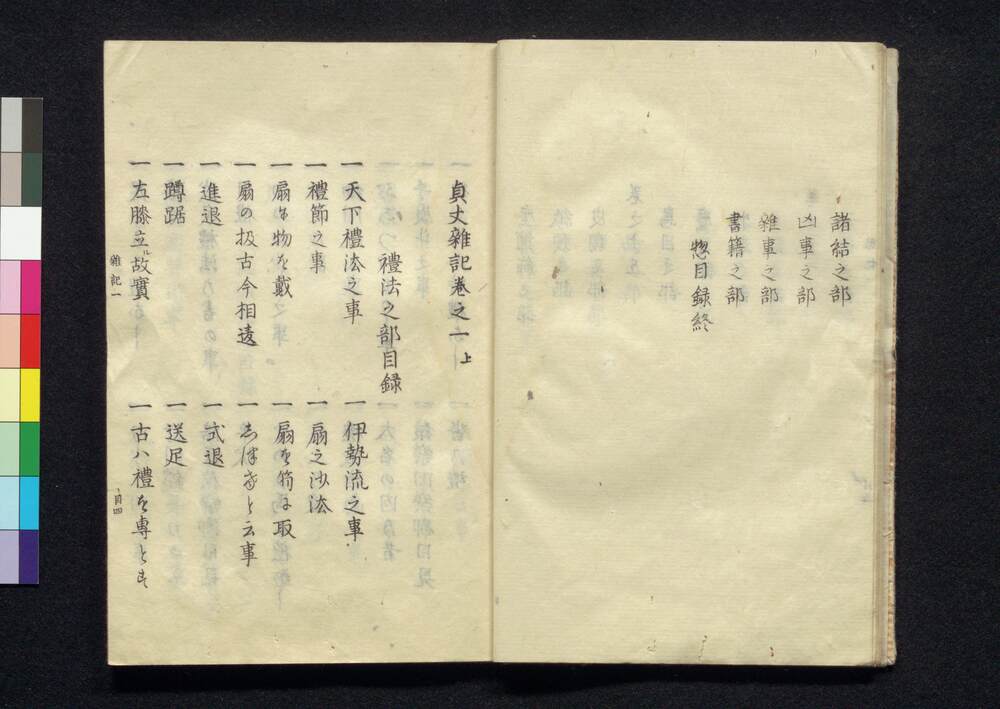 諸結之部
凶事之部
雜事之部
書籍之部
惣目録終
貞丈雜記卷之一上
禮法之部目録
一天下禮法之事
一伊勢流之事
一禮節之事
一扇之沙汰
一扇に物を戴
一扇を笏に取
一扇の扱古今相違
一と云事
一進退
一式退
一蹲踞
一送足
一左膝立ル故實
一古ハ禮を專とす
雜記一
目四